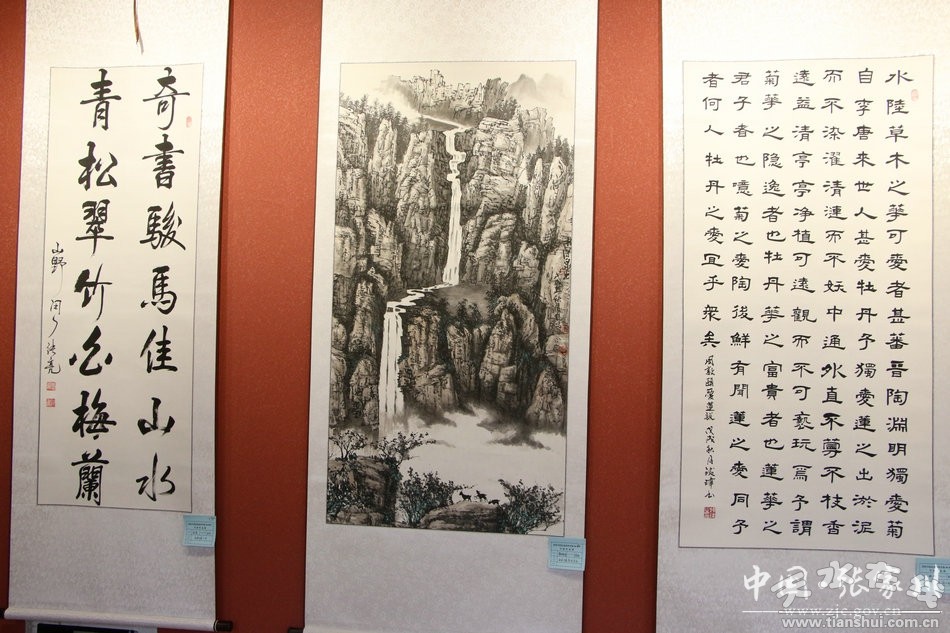 奇書駿馬佳山水
青松翠竹梅蘭
山野
水陸草木之華可愛者甚蕃晉陶淵明獨愛菊
自李唐來世人甚愛牡丹予獨愛蓮之出淤泥
而不染濯清漣而不妖中通外直不蔓不枝香
遠益清亭亭净植可遠觀而不可褻玩焉予謂
菊華之隐逸者也牡丹華之富貴者也蓮華之
君子者也噫菊之愛陶後鮮有聞蓮之愛同予
者何人牡丹之愛宜乎衆矣
周敦頤愛蓮說 戊戌秋月
www.zjc.gov.cn
www.tianshui.com.cn